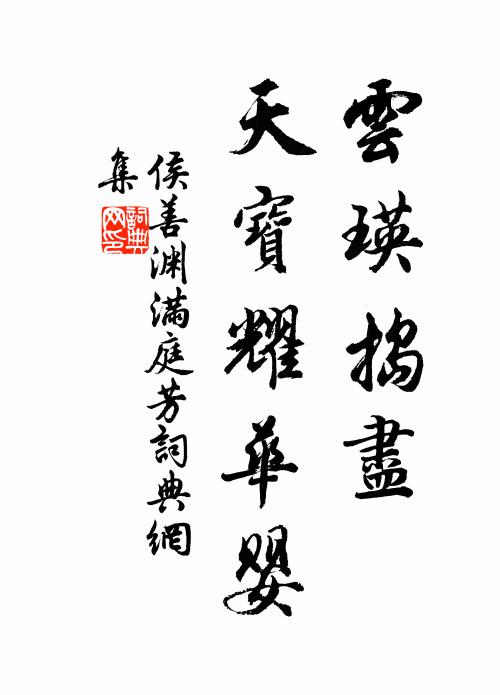 雲瑛搗盡
天寶耀華嬰
侯善淵滿庭芳詞典網
集
詞典網印